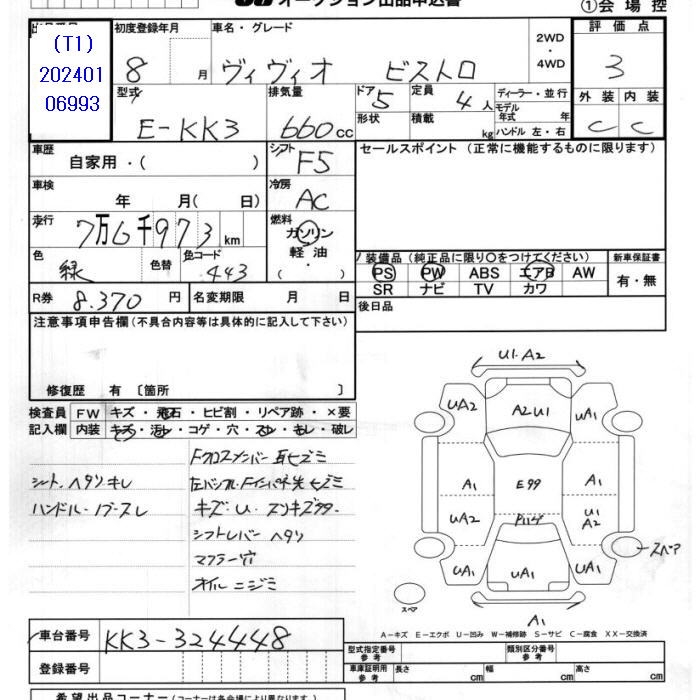 オークション出品申込書
①会場控
出品番号
(T1)
202401
06993
初度登録年月
8 月
車名・グレード
ヴィヴィオ ビストロ
2WD
・
4WD
評価点
3
型式
E-KK3
排気量
660cc
ドア 5
形状
定員 4人
積載 kg
ディーラー・並行
モデル年式 年
ハンドル 左・右
外装 内装
C C
車歴
自家用・( )
シフト F5
セールスポイント (正常に機能するものに限ります)
車検
年 月( 日)
冷房 AC
走行
7万6千973km
燃料
ガソリン
軽油
( ・ )
色
緑
色替
色コード
443
装備品(純正品に限り〇をつけてください)
PS PW ABS エアB AW
SR ナビ TV カワ
新車保証書
有・無
R券 8.370 円
名変期限 月 日
後日品
注意事項申告欄(不具合内容等は具体的に記入して下さい)
修復歴 有 〔箇所 〕
検査員 FW キズ・飛石・ヒビ割・リペア跡・×要
記入欄 内装 キズ・汚レ・コゲ・穴・スレ・モレ・破レ
シート、ヘタリ、キレ
ハンドル・ノブ・スレ
キズ U. スリキズ
シフトレバー ヘタリ
マフラー穴
オイル ニジミ
U1.A2
UA2
A2U1
UA1
A1
E99
A1
UA2
U1
A2
UA1
UA1
UA1
A1
スペア
スペア
A-キズ E-エクボ U-凹み W-補修跡 S-サビ C-腐食 XX-交換済
車台番号 KK3-324448
登録番号
型式指定番号
参考
類別区分番号
参考
車庫証明用
参考
長さ cm
幅 cm
高さ cm
希望出品コーナー(コーナーは各会場により異なります)